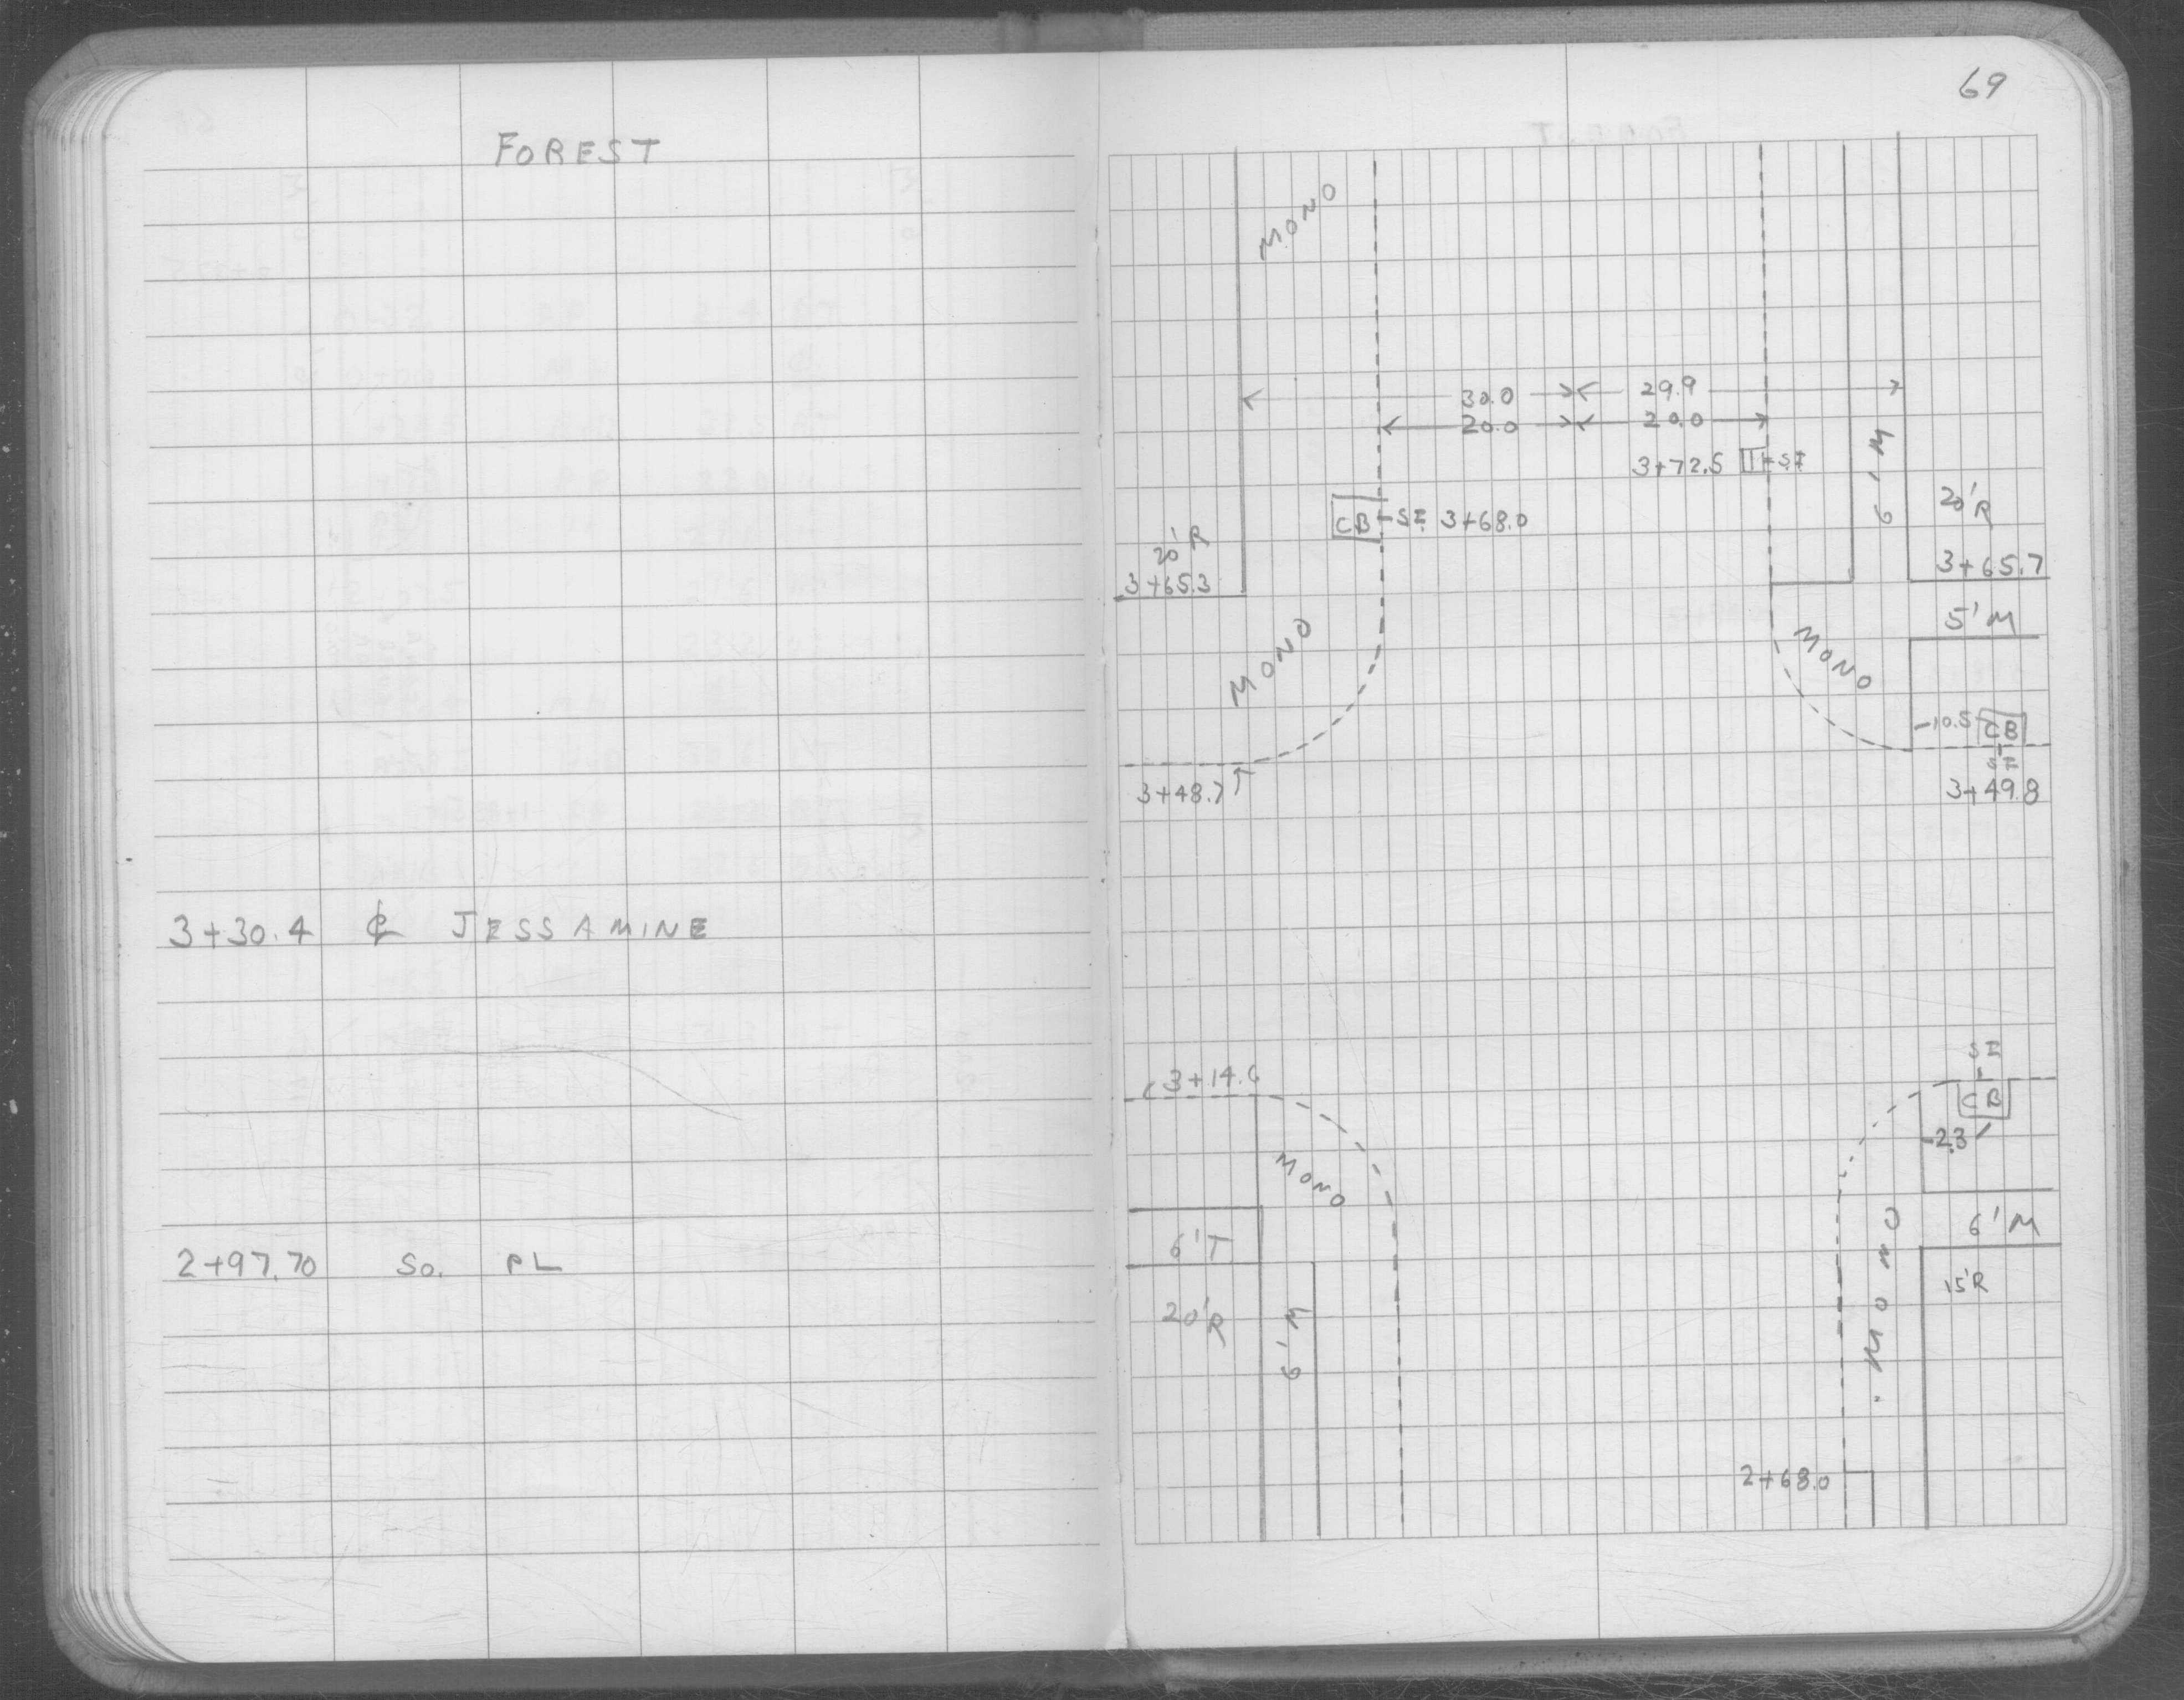 FOREST
3+30.4 ⅊ JESSAMINE
2+97.70 So. PL
69
MONO
30.0 29.9
20.0 20.0
3+72.5 SI
6'M
CB SI 3+68.0
20'R
3+65.3
20'R
3+65.7
5'M
MONO
MONO
10.5 CB
SI
3+48.7
3+49.8
SI
3+14.6
CB
2.3
MONO
6'T
6'M
MONO
20'R
6'M
15'R
2+68.0